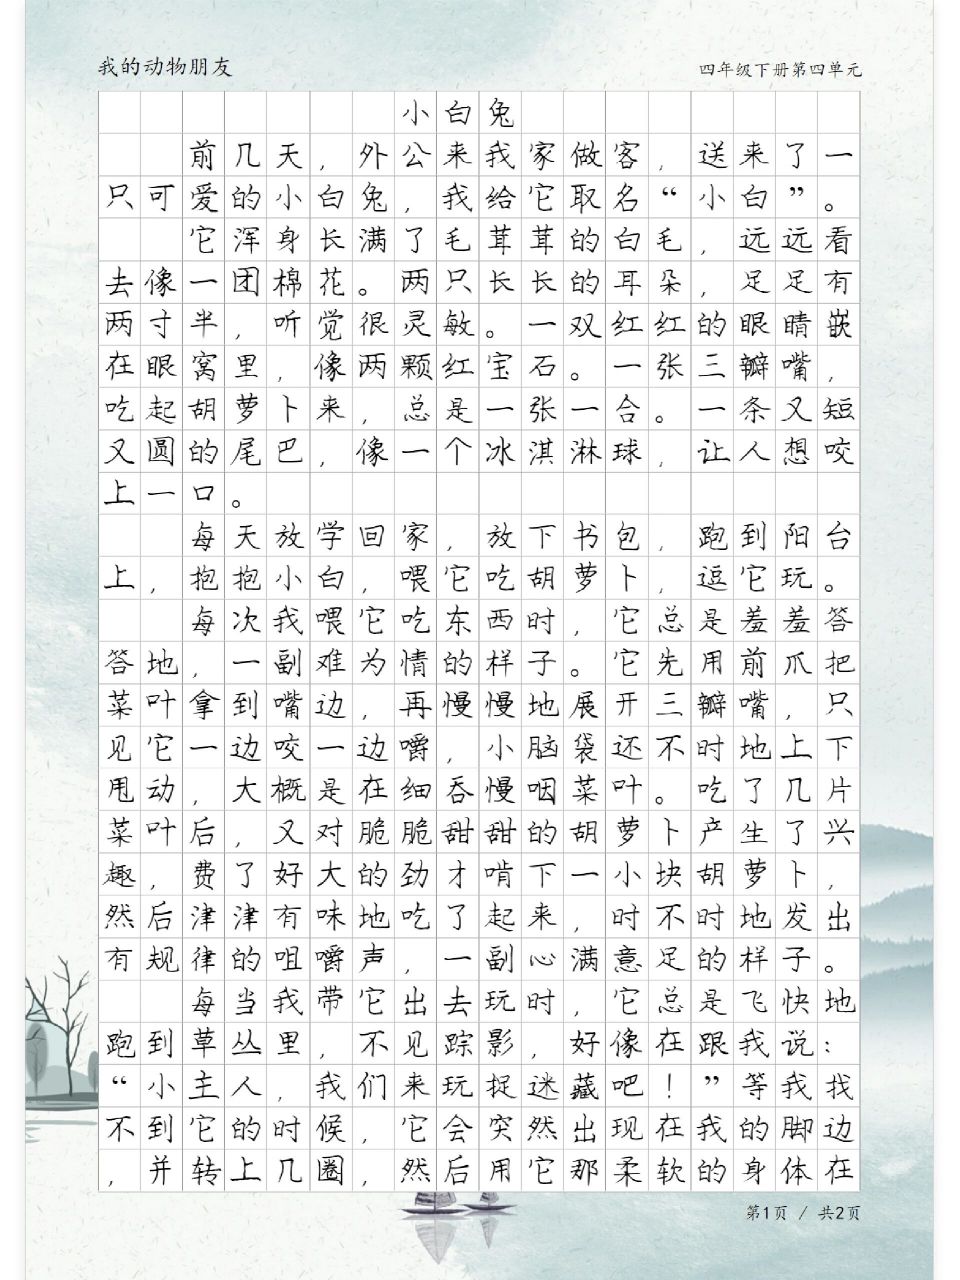 我的动物朋友
四年级下册第四单元
小白兔
前几天，外公来我家做客，送来了一
只可爱的小白兔，我给它取名“小白”。
它浑身长满了毛茸茸的白毛，远远看
去像一团棉花。两只长长的耳朵，足足有
两寸半，听觉很灵敏。一双红红的眼睛嵌
在眼窝里，像两颗红宝石。一张三瓣嘴，
吃起胡萝卜来，总是一张一合。一条又短
又圆的尾巴，像一个冰淇淋球，让人想咬
上一口。
每天放学回家，放下书包，跑到阳台
上，抱抱小白，喂它吃胡萝卜，逗它玩。
每次我喂它吃东西时，它总是羞羞答
答地，一副难为情的样子。它先用前爪把
菜叶拿到嘴边，再慢慢地展开三瓣嘴，只
见它一边咬一边嚼，小脑袋还不时地上下
甩动，大概是在细吞慢咽菜叶。吃了几片
菜叶后，又对脆脆甜甜的胡萝卜产生了兴
趣，费了好大的劲才啃下一小块胡萝卜，
然后津津有味地吃了起来，时不时地发出
有规律的咀嚼声，一副心满意足的样子。
每当我带它出去玩时，它总是飞快地
跑到草丛里，不见踪影，好像在跟我说：
“小主人，我们来玩捉迷藏吧！”等我找
不到它的时候，它会突然出现在我的脚边
，并转上几圈，然后用它那柔软的身体在
第1页 / 共2页